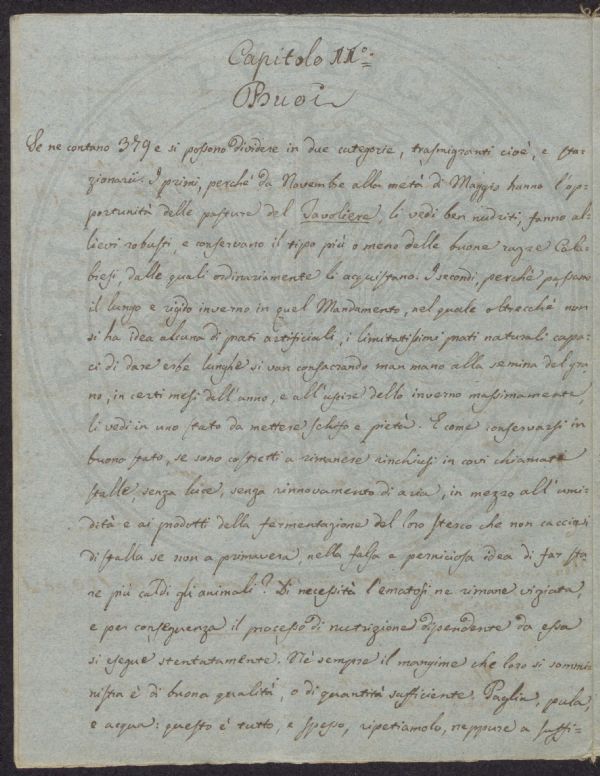 Capitolo II.°
Buoi
Se ne contano 379 e si possono dividere in due categorie, trasmigranti cioè, e sta-
zionarii. I primi, perché da Novembre alla metà di Maggio hanno l'op-
portunità delle pasture del Tavoliere, li vedi ben nudriti, fanno al-
lievi robusti, e conservano il tipo più o meno delle buone razze Cala-
bresi, dalle quali ordinariamente li acquistano. I secondi, perchè passano
il lungo e rigido inverno in quel Mandamento, nel quale oltrecchè non
si ha idea alcuna di prati artificiali, i limitatissimi prati naturali capa-
ci di dare erbe lunghe si van consacrando man mano alla semina del gra-
no, in certi mesi dell'anno, e all'uscire dello inverno massimamente,
li vedi in uno stato da mettere schifo e pietà. E come conservarsi in
buono stato, se sono costretti a rimanere rinchiusi in covi chiamate
stalle, senza luce, senza rinnovamento di aria, in mezzo all'umi-
dità e ai prodotti della fermentazione del loro sterco che non cacciasi
di stalla se non a primavera, nella falsa e perniciosa idea di far sta-
re più caldi gli animali? Di necessità l'ematosi ne rimane viziata,
e per conseguenza il processo di nutrizione dipendente da essa
si esegue stentatamente. Né sempre il mangime che loro si sommi-
nistra è di buona qualità, o di quantità sufficiente. Paglia, pula,
e acqua: questo è tutto, e spesso, ripetiamolo, neppure a suffi-